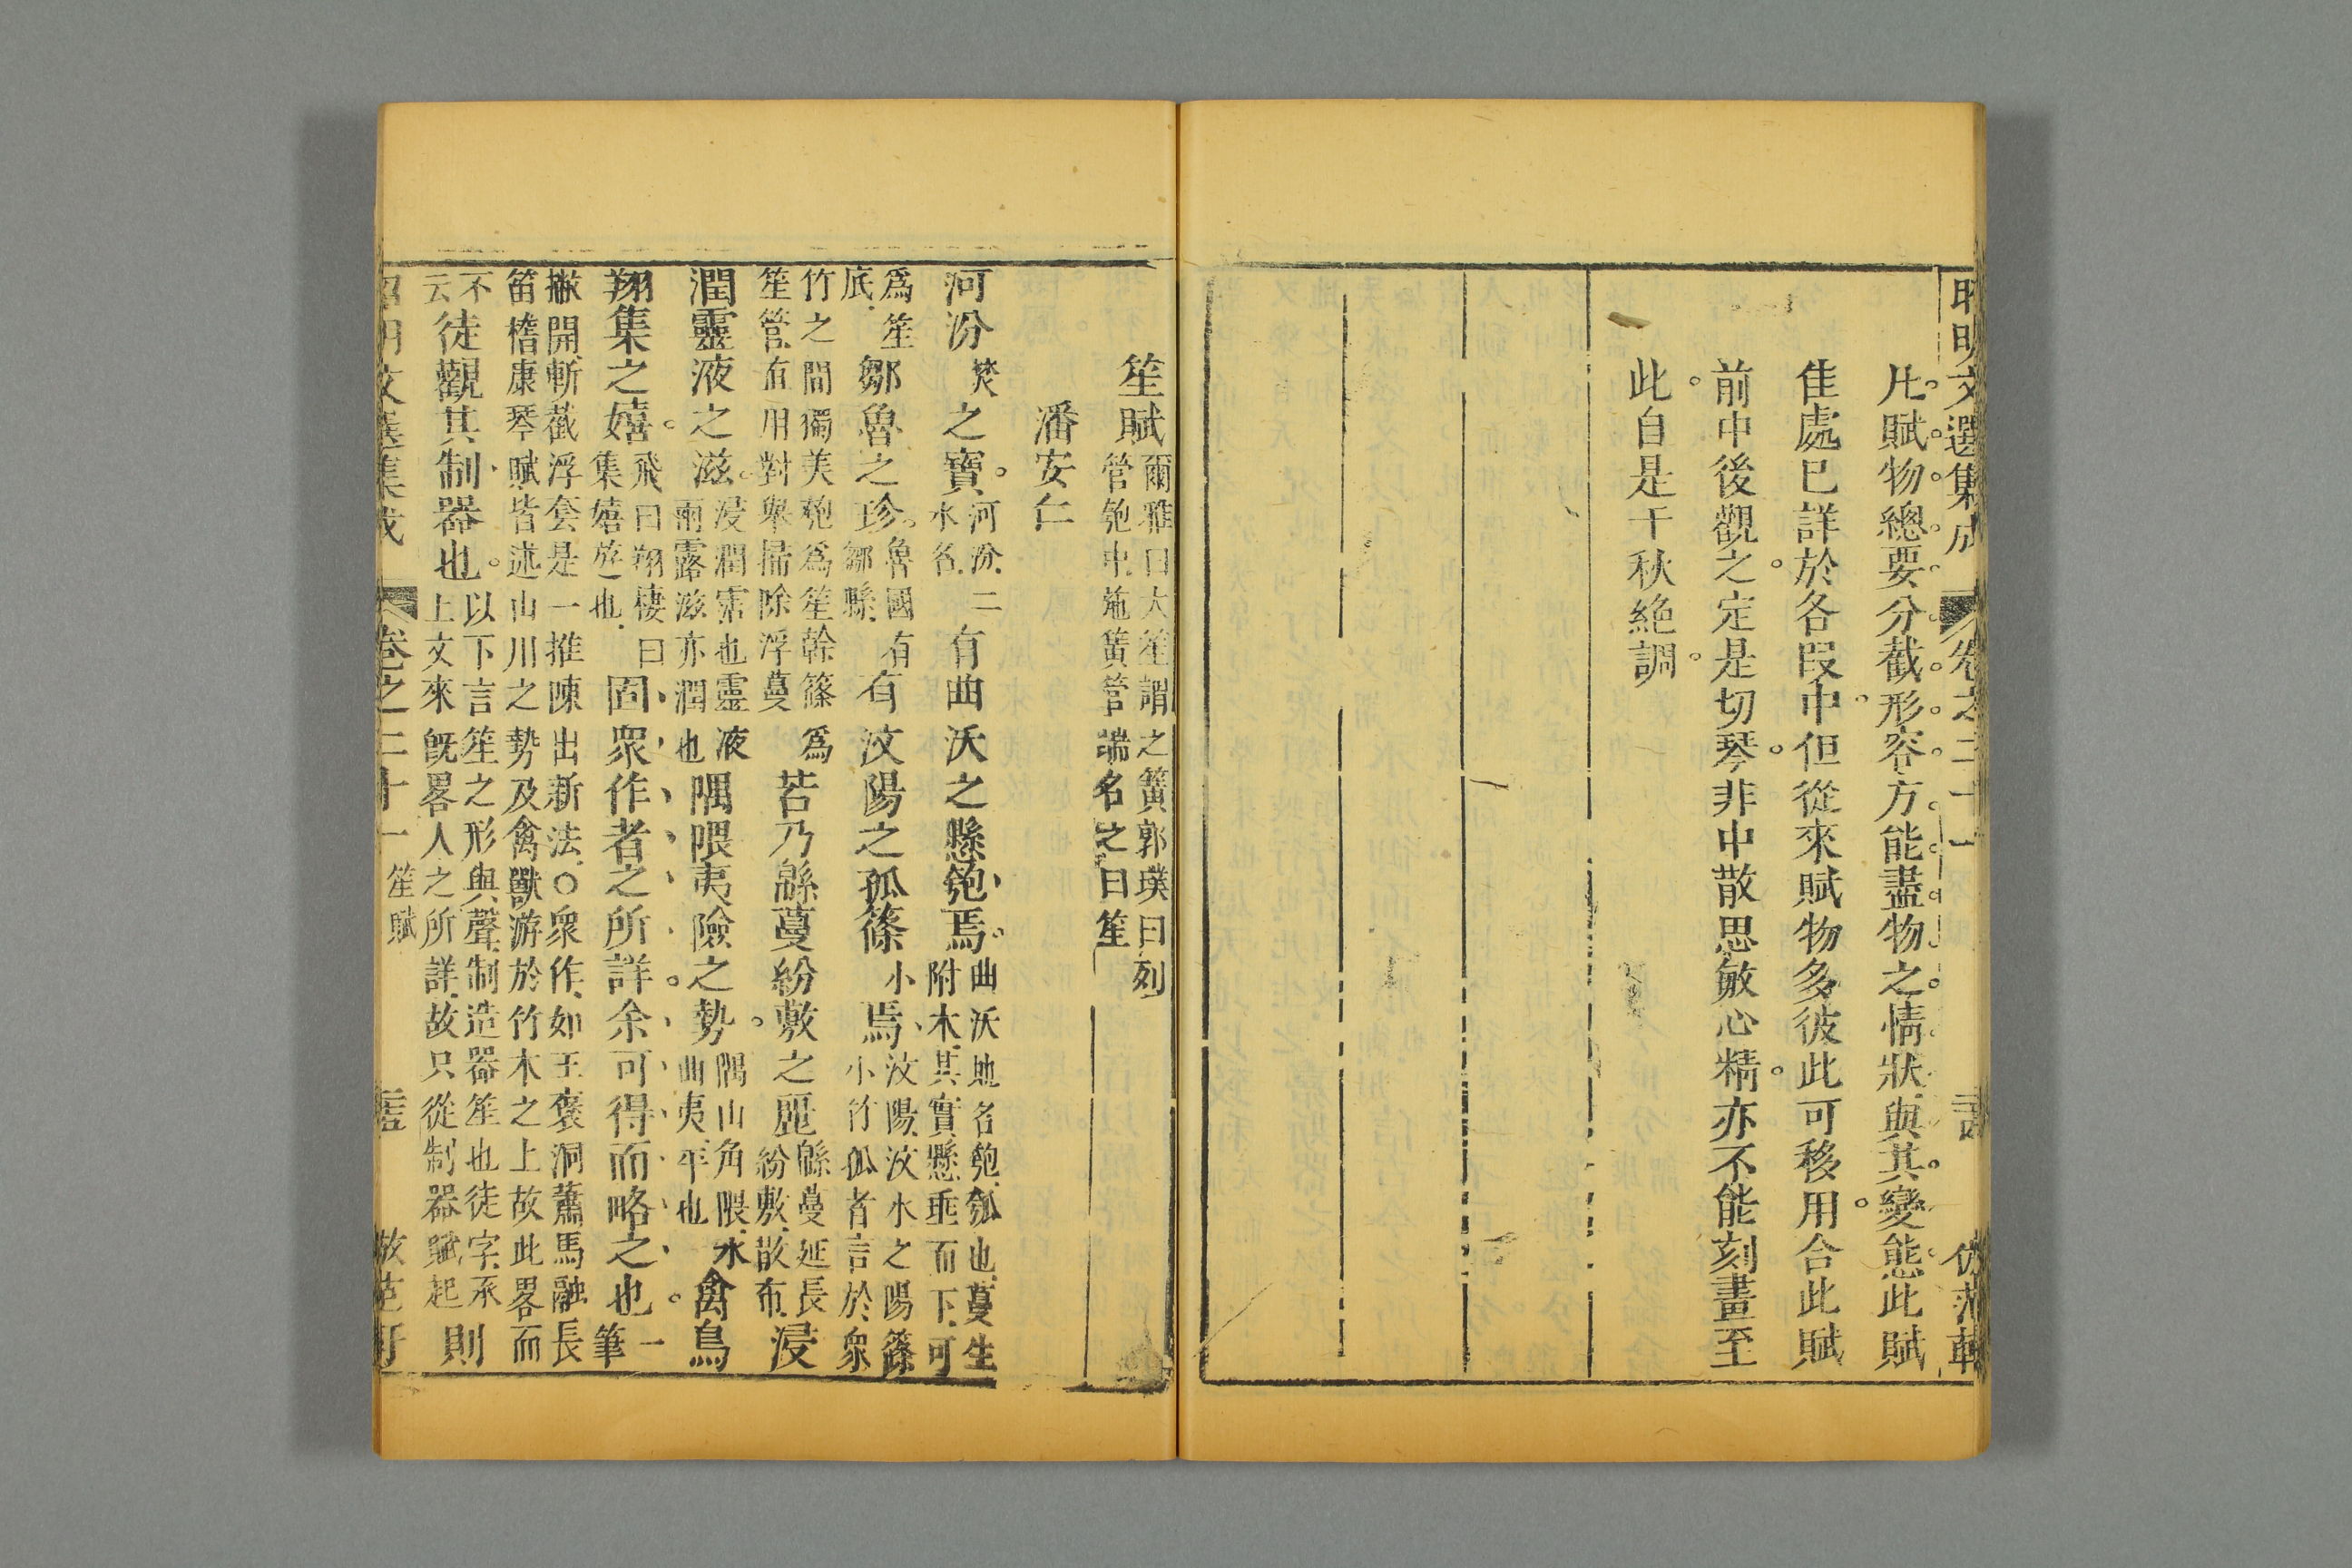 昭明文選集成 卷之二十一
凡賦物總要分截形容方能盡物之情狀與其變態此賦
佳處已詳於各段中但從來賦物多彼此可移用合此賦
前中後觀之定是切琴非中散思敏心精亦不能刻畫至
此自是千秋絶調
笙賦
爾雅曰大笙謂之簧郭璞曰列
管匏中施簧管端名之曰笙
潘安仁
河汾
焚
之寶
河汾二
水名
有曲沃之懸匏焉
曲沃地名匏瓠也蔓生
附木其實懸垂而下可
爲笙
底
鄒魯之珍
魯國有
鄒縣
有汶陽之孤篠
小
焉
汶陽汶水之陽篠
小竹孤者言於衆
竹之間獨美匏爲笙幹篠爲
笙管有用對舉掃除浮蔓
若乃緜蔓紛敷之麗
緜蔓延長
紛敷散布
浸
潤靈液之滋
浸潤霑也靈液
雨露滋亦潤也
隅隈夷險之勢
隅山角隈水
曲夷平也
禽鳥
翔集之嬉
飛曰翔棲曰
集嬉遊也
固衆作者之所詳余可得而略之也
一
筆
撇開斬截浮套是一推陳出新法○衆作如王褒洞蕭馬融長
笛嵇康琴賦皆述山川之勢及禽獸游於竹木之上故此畧而
不
云
徒觀其制器也
以下言笙之形與聲制造器笙也徒字承
上文來旣畧人之所詳故只從制器賦起
則
昭明文選集成 卷之二十一 笙賦